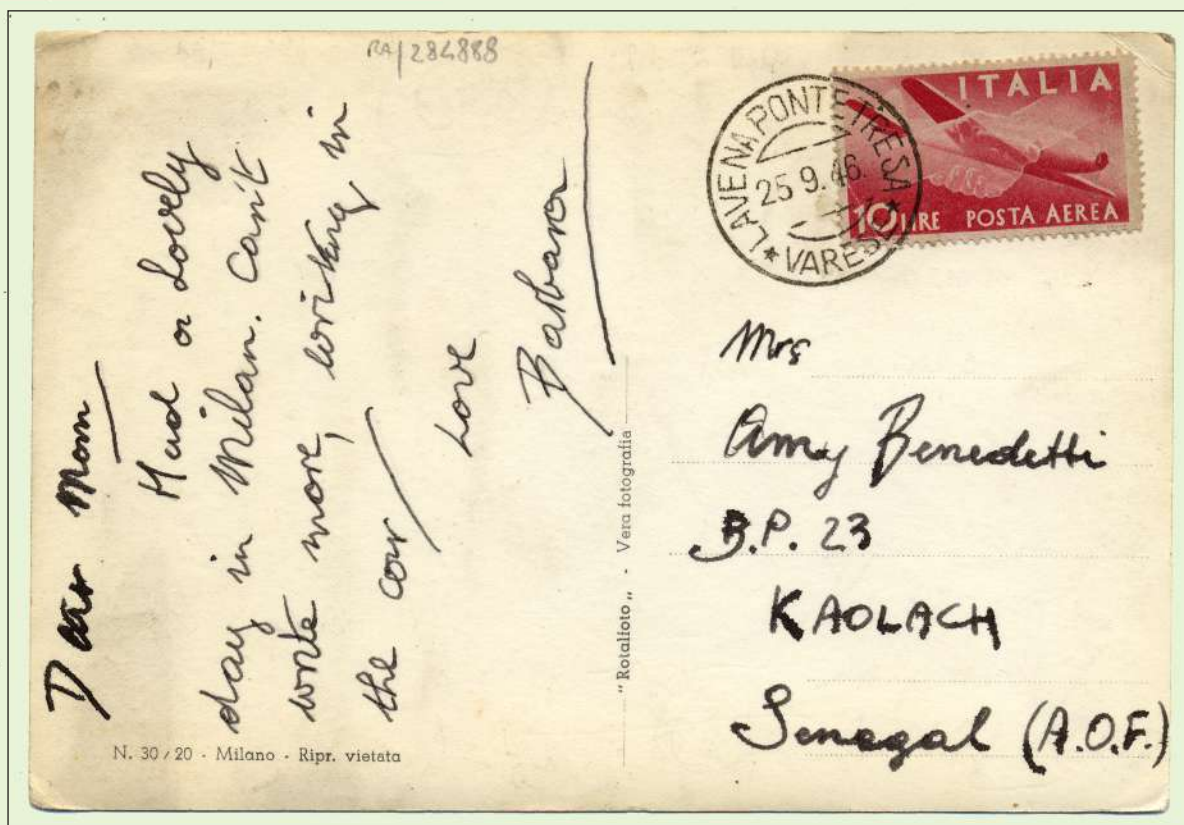 RA/284888
Dear Mom
Had a Lovely
day in Milan. Can't
write more, writing in
the car
Love
Barbara
N. 30/20 - Milano - Ripr. vietata
"Rotalfoto" - Vera fotografia
LAVENA PONTE TRESA
25 9.46.
* VARESE *
ITALIA
10 LIRE POSTA AEREA
Mrs
Amy Benedetti
B.P. 23
KAOLACH
Senegal (A.O.F.)